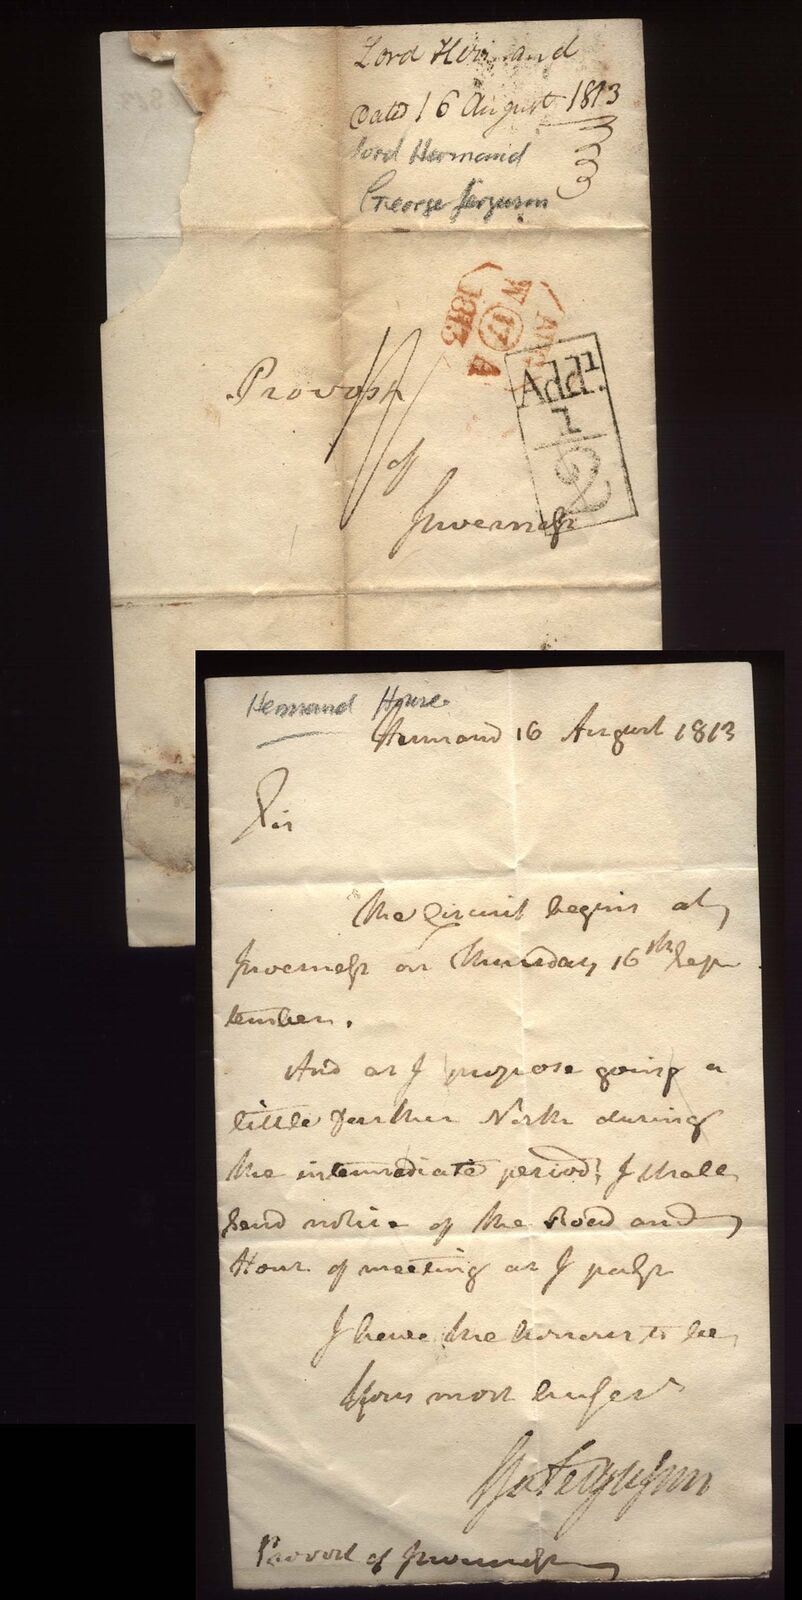 Lord Hermand
Dated 16 August 1813
Lord Hermand
George Ferguson
AUG
W 17 A
1813
Provost
of
Inverness
Addl.
1
2
Hermand House
Hermand 16 August 1813
Sir
The Circuit begins at
Inverness on Thursday 16th Sep
tember.
And as I propose going a
little farther North during
the intermediate period, I shall
send notice of the Road and
Hour of meeting as I pass
I have the honour to be
Your most
Geo Fergusson
Provost of Inverness